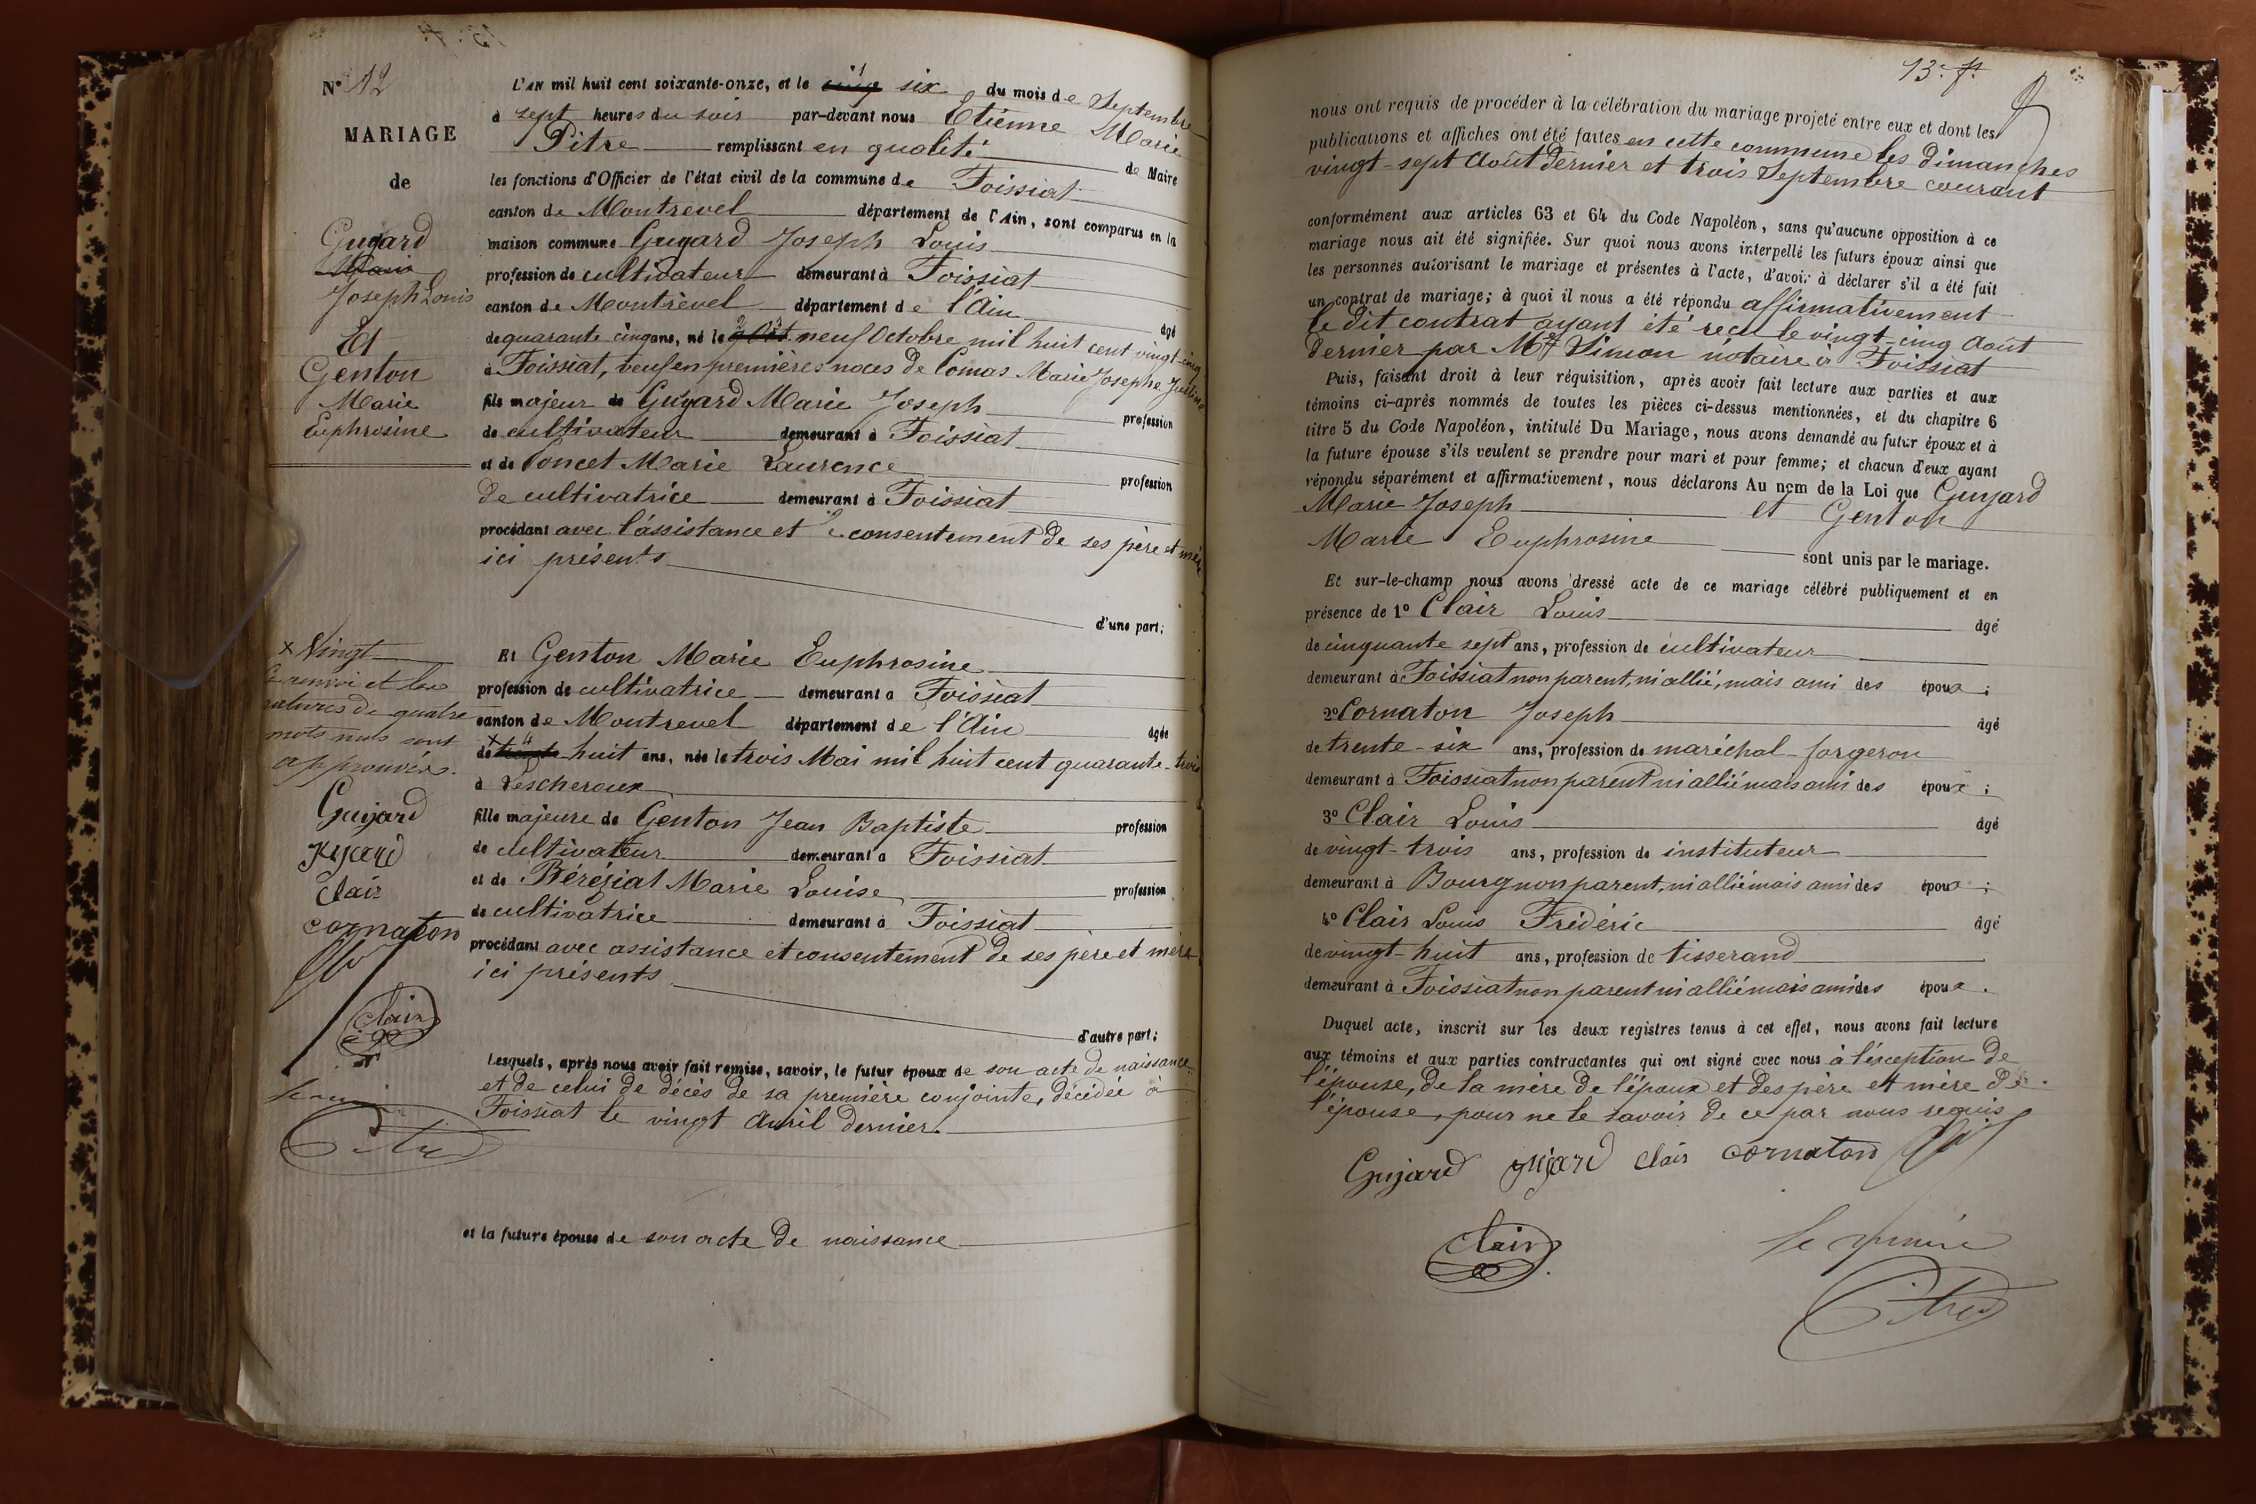 N° 12
MARIAGE
de
Guyard
Joseph Louis
Et
Genton
Marie
Euphrosine
L'AN mil huit cent soixante-onze, et le six du mois de Septembre
à sept heures du soir par-devant nous Etienne Marie
Pitre remplissant en qualité de Maire
les fonctions d'Officier de l'état civil de la commune de Foissiat
canton de Montrevel département de l'Ain, sont comparus en la
maison commune Guyard Joseph Louis
profession de cultivateur demeurant à Foissiat
canton de Montrevel département de l'Ain âgé
de quarante cinq ans, né le neuf Octobre mil huit cent vingt-cinq
à Foissiat, veuf en premières noces de Comas Marie Josephe
fils majeur de Guyard Marie Joseph profession
de cultivateur demeurant à Foissiat
et de Poncet Marie Laurence profession
de cultivatrice demeurant à Foissiat
procédant avec l'assistance et le consentement de ses père et mère
ici présents
d'une part;
x Vingt
Le renvoi et les
ratures de quatre
mots nuls sont
approuvés.
Guyard
guyard
Clair
cornaton
Clair
le maire
Pitre
Et Genton Marie Euphrosine
profession de cultivatrice demeurant à Foissiat
canton de Montrevel département de l'Ain âgée
de x huit ans, née le trois Mai mil huit cent quarante-trois
à Lescheroux
fille majeure de Genton Jean Baptiste profession
de cultivateur demeurant à Foissiat
et de Béréziat Marie Louise profession
de cultivatrice demeurant à Foissiat
procédant avec assistance et consentement de ses père et mère
ici présents
d'autre part;
Lesquels, après nous avoir fait remise, savoir, le futur époux de son acte de naissance
et de celui de décès de sa première conjointe, décédée à
Foissiat le vingt Avril dernier.
et la future épouse de son acte de naissance
13e f.
nous ont requis de procéder à la célébration du mariage projeté entre eux et dont les
publications et affiches ont été faites en cette commune les dimanches
vingt-sept Août dernier et trois Septembre courant
conformément aux articles 63 et 64 du Code Napoléon, sans qu'aucune opposition à ce
mariage nous ait été signifiée. Sur quoi nous avons interpellé les futurs époux ainsi que
les personnes autorisant le mariage et présentes à l'acte, d'avoir à déclarer s'il a été fait
un contrat de mariage; à quoi il nous a été répondu affirmativement
le dit contrat ayant été reçu le vingt-cinq Août
dernier par Me Simon notaire à Foissiat
Puis, faisant droit à leur réquisition, après avoir fait lecture aux parties et aux
témoins ci-après nommés de toutes les pièces ci-dessus mentionnées, et du chapitre 6
titre 5 du Code Napoléon, intitulé Du Mariage, nous avons demandé au futur époux et à
la future épouse s'ils veulent se prendre pour mari et pour femme; et chacun d'eux ayant
répondu séparément et affirmativement, nous déclarons Au nom de la Loi que Guyard
Marie Joseph et Genton
Marie Euphrosine sont unis par le mariage.
Et sur-le-champ nous avons dressé acte de ce mariage célébré publiquement et en
présence de 1° Clair Louis âgé
de cinquante sept ans, profession de cultivateur
demeurant à Foissiat non parent, ni allié, mais ami des époux;
2° Cornaton Joseph âgé
de trente-six ans, profession de maréchal-forgeron
demeurant à Foissiat non parent ni allié mais ami des époux;
3° Clair Louis âgé
de vingt-trois ans, profession de instituteur
demeurant à Bourg non parent, ni allié mais ami des époux;
4° Clair Louis Frédéric âgé
de vingt-huit ans, profession de tisserand
demeurant à Foissiat non parent ni allié mais ami des époux.
Duquel acte, inscrit sur les deux registres tenus à cet effet, nous avons fait lecture
aux témoins et aux parties contractantes qui ont signé avec nous à l'exception de
l'épouse, de la mère de l'époux et des père et mère de
l'épouse, pour ne le savoir de ce par nous requis
Guyard guyard Clair cornaton
Clair
le maire
Pitre